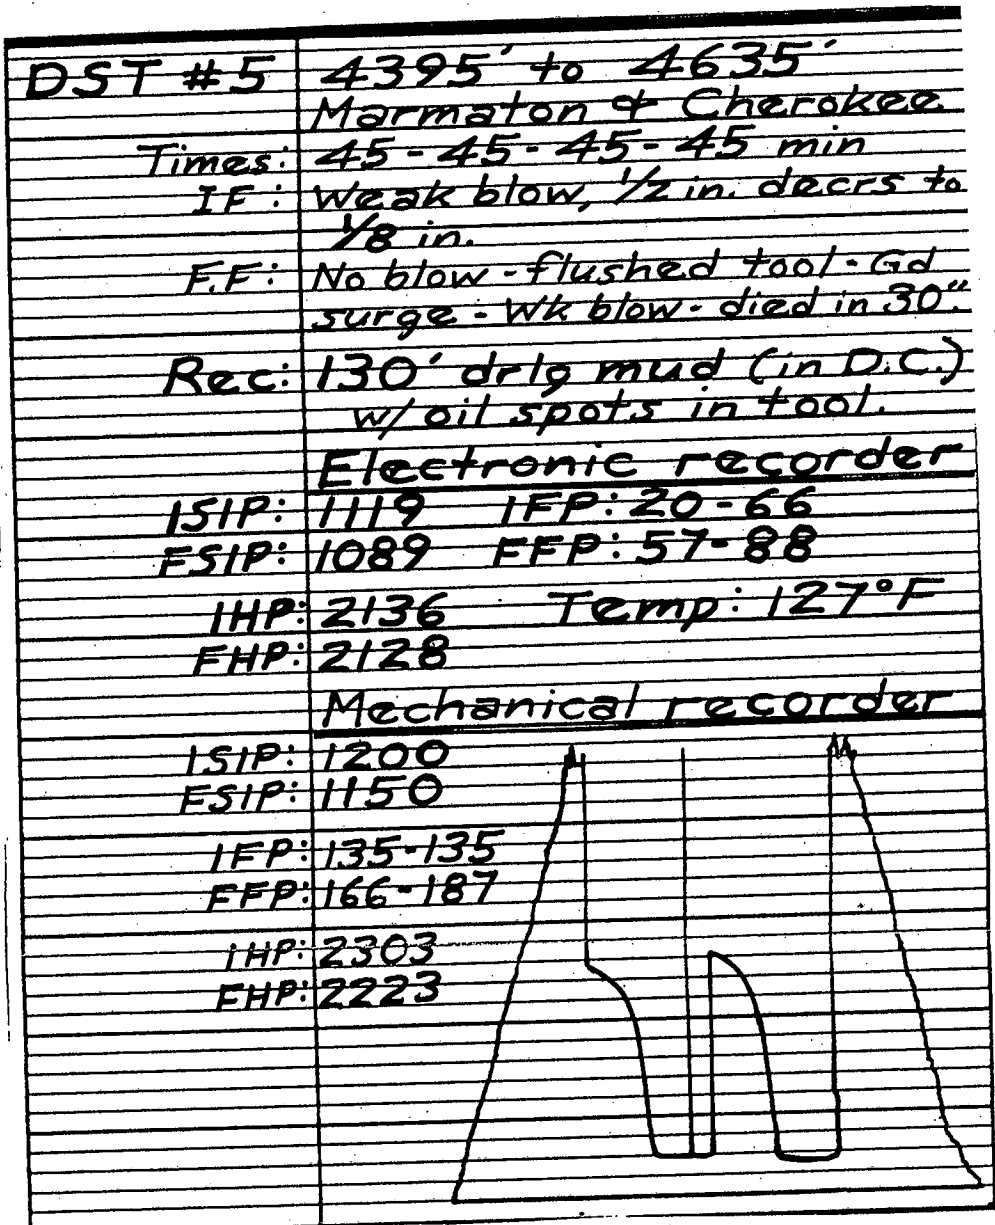 DST #5 4395' to 4635'
Marmaton & Cherokee
Times: 45-45-45-45 min
IF: Weak blow, 1/2 in. decrs to
1/8 in.
F.F: No blow - flushed tool - Gd
surge - Wk blow - died in 30".
Rec: 130' drlg mud (in D.C.)
w/ oil spots in tool.
Electronic recorder
ISIP: 1119 IFP: 20-66
FSIP: 1089 FFP: 57-88
IHP: 2136 Temp: 127°F
FHP: 2128
Mechanical recorder
ISIP: 1200
FSIP: 1150
IFP: 135-135
FFP: 166-187
IHP: 2303
FHP: 2223